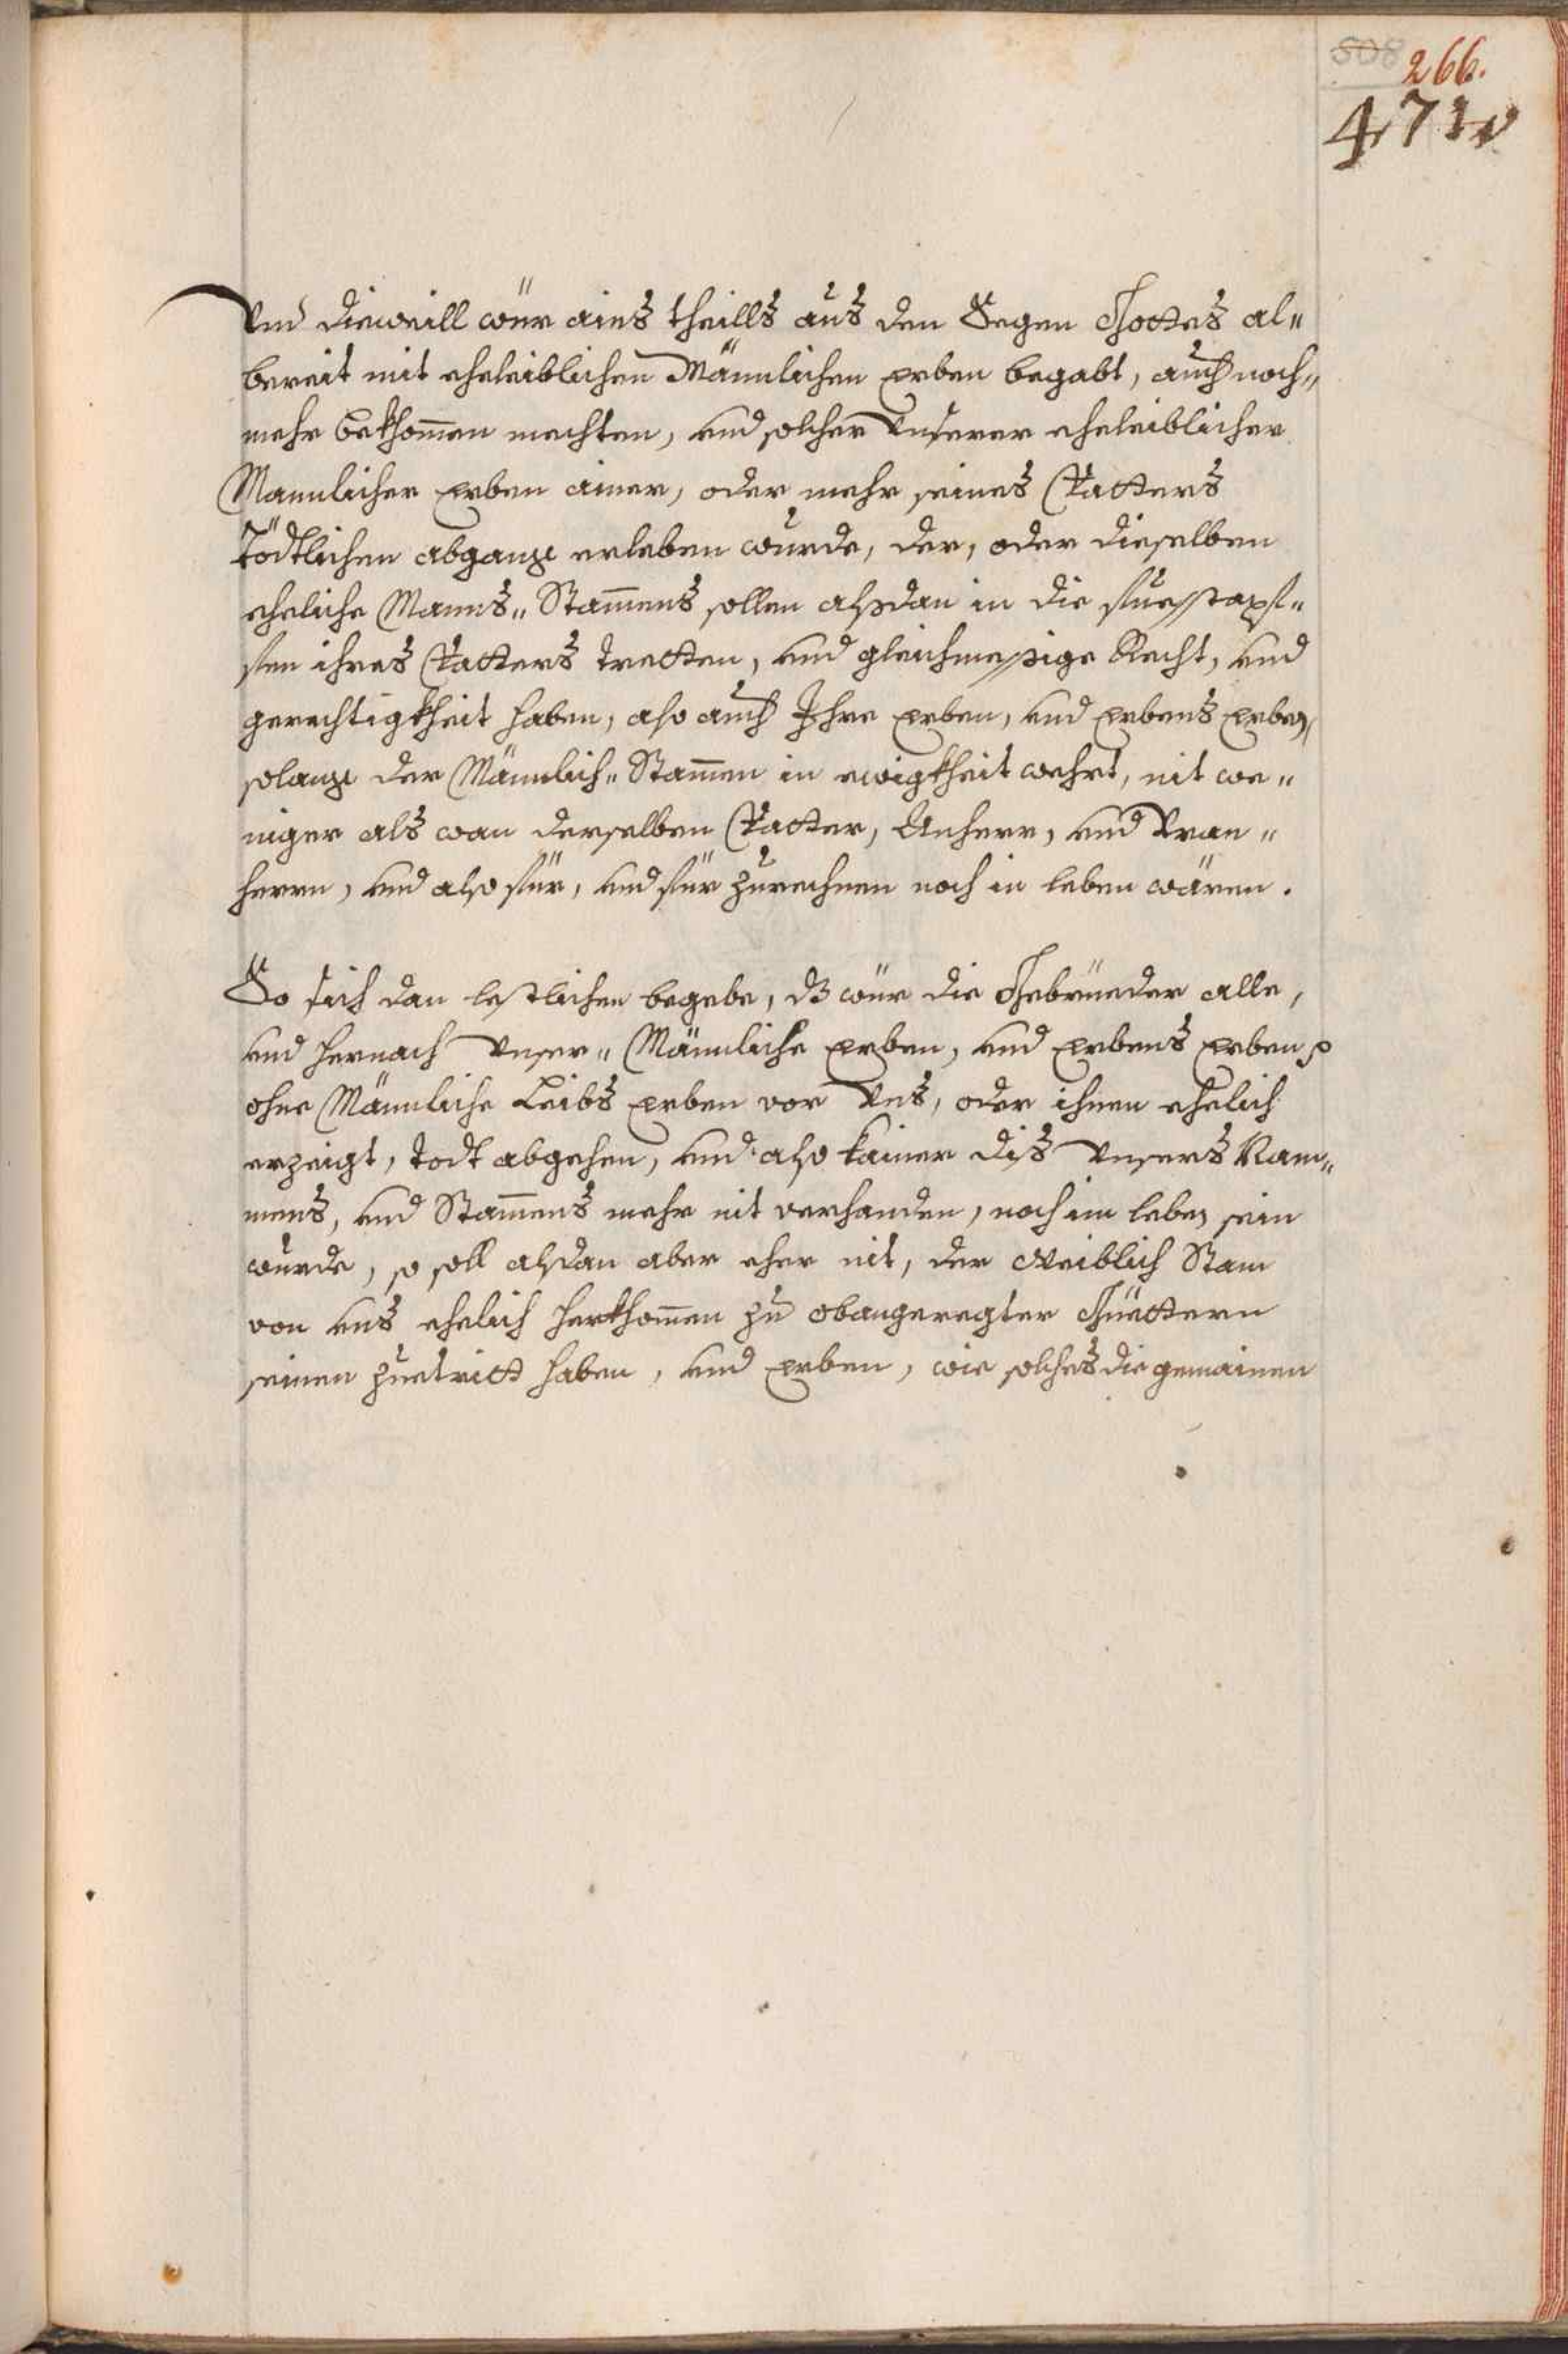 508
266.
471
Vnd dieweill wür ains theills aus den Segen Gottes al„
bereit mit eheleiblichen Männlichen erben begabt, auch noch„
mehr bekhommen mechten, vnd solcher Vnserer eheleiblicher
Mannlicher erben ainer, oder mehr seines Vatters
tödtlichen abgang erleben wurde, der, oder dieselben
eheliche Manns„ Stammens sollen alßdan in die fuesstapf„
fen ihres Vatters tretten, vnd gleichmessige Recht, vnd
gerechtigkheit haben, also auch Ihre erben, vnd erbens erben,
solang der Männlich„ Stammen in ewigkheit wehrt, nit we„
niger als wan derselben Vatter, Anherr, und Vran„
herrn, vnd also für, vnd für zurechnen noch in leben wären.
So sich dan lestlichen begebe, dz wür die Gebrüeder alle,
vnd hernach Vnser„ Männliche erben, vnd erbens erben
ohne Männliche Leibs erben vor Vns, oder ihnen ehelich
erzeigt, todt abgehen, vnd also kainer diß Vnsers Nam„
mens, vnd Stammens mehr nit verhanden, noch im leben sein
wurde, so soll alßdan aber eher nit, der Weiblich Stam
von vns ehelich herkhommen zu obangeregter Güettern
seinen zuetritt haben, vnd erben, wie solches die gemainen